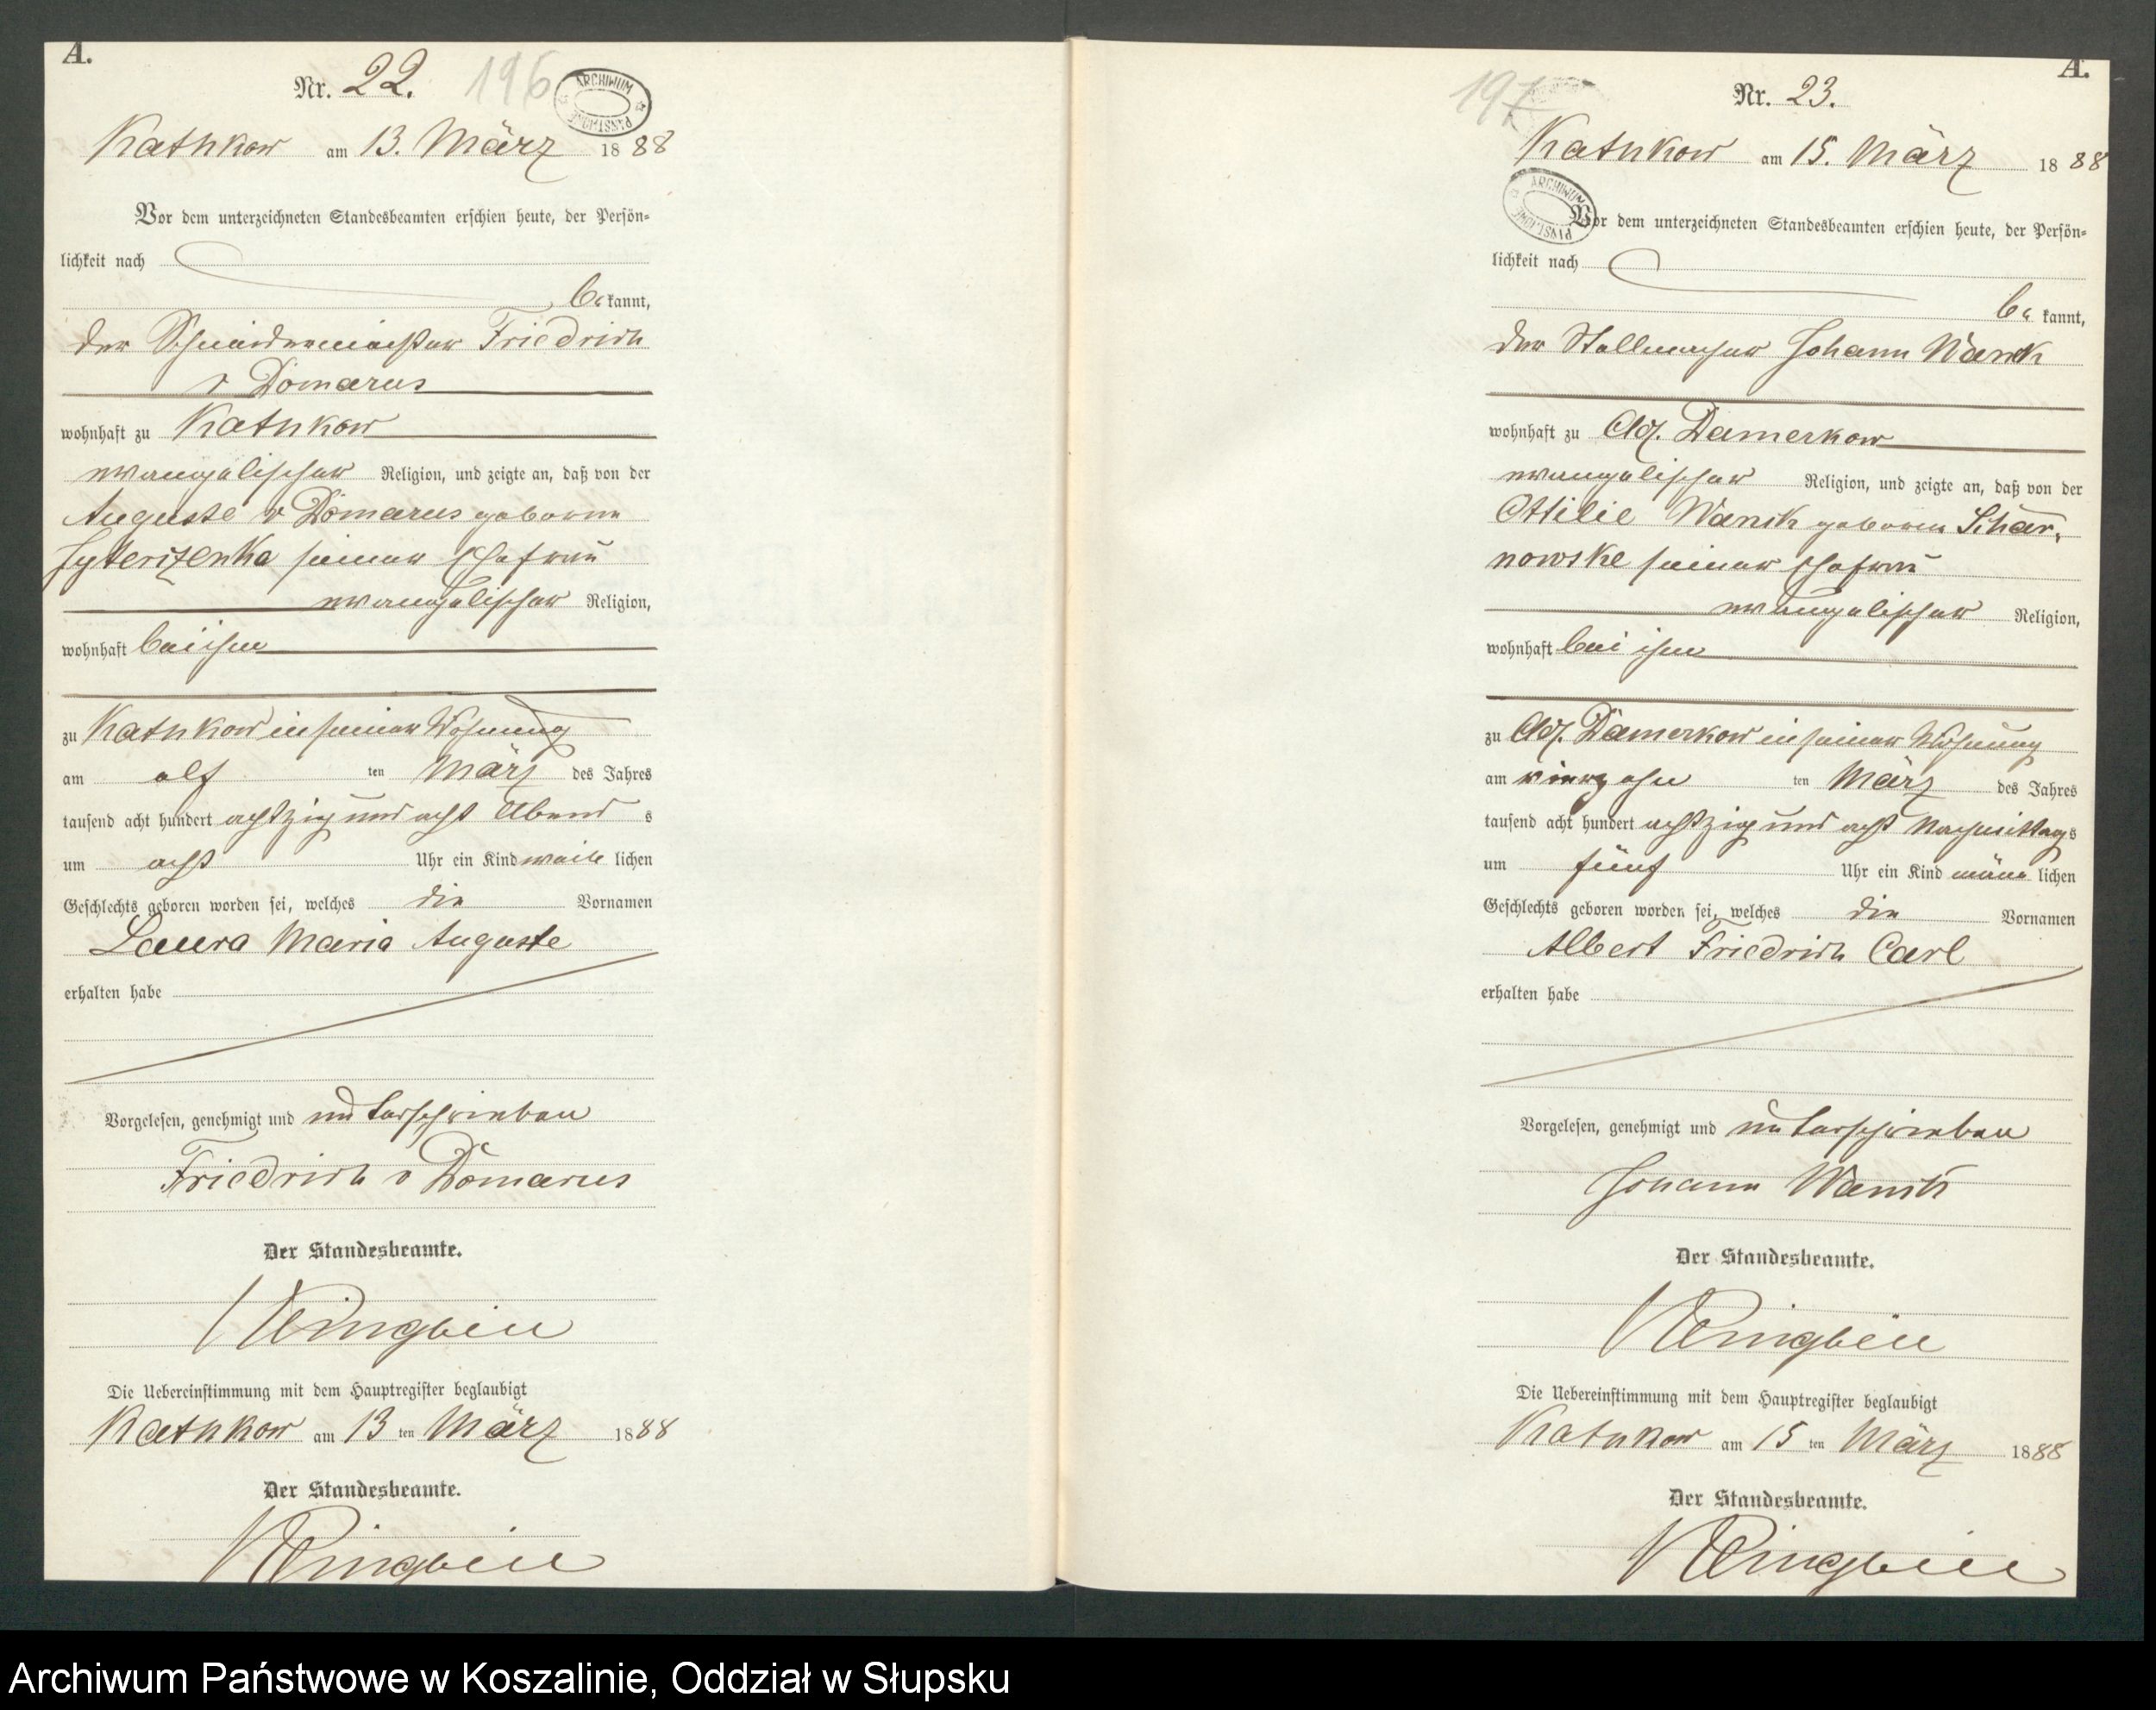 A.
Nr. 22.
196
ARCHIWUM PAŃSTWOWE
Kathkow am 13. März 1888
Vor dem unterzeichneten Standesbeamten erschien heute, der Persön-
lichkeit nach
bekannt,
der Schneidermeister Friedrich
v Domarus
wohnhaft zu Kathkow
evangelischer Religion, und zeigte an, daß von der
Auguste v Domarus geborene
seiner Ehefrau
evangelischer Religion,
wohnhaft bei ihm
zu Kathkow in seiner Wohnung
am elf ten März des Jahres
tausend acht hundert achtzig und acht Abends
um acht Uhr ein Kind weiblichen
Geschlechts geboren worden sei, welches die Vornamen
Laura Maria Auguste
erhalten habe
Vorgelesen, genehmigt und unterschrieben
Friedrich v Domarus
Der Standesbeamte.
Die Uebereinstimmung mit dem Hauptregister beglaubigt
Kathkow am 13 ten März 1888
Der Standesbeamte.
A.
Nr. 23.
197
Kathkow am 15. März 1888
ARCHIWUM PAŃSTWOWE
Vor dem unterzeichneten Standesbeamten erschien heute, der Persön-
lichkeit nach
bekannt,
der Stellmacher Johann Wanck
wohnhaft zu Adl. Damerkow
evangelischer Religion, und zeigte an, daß von der
Ottilie Wanck geborene Schar-
nowske seiner Ehefrau
evangelischer Religion,
wohnhaft bei ihm
zu Adl. Damerkow in seiner Wohnung
am vierzehn ten März des Jahres
tausend acht hundert achtzig und acht Nachmittags
um fünf Uhr ein Kind männlichen
Geschlechts geboren worden sei, welches die Vornamen
Albert Friedrich Carl
erhalten habe
Vorgelesen, genehmigt und unterschrieben
Johann Wanck
Der Standesbeamte.
Die Uebereinstimmung mit dem Hauptregister beglaubigt
Kathkow am 15 ten März 1888
Der Standesbeamte.
Archiwum Państwowe w Koszalinie, Oddział w Słupsku